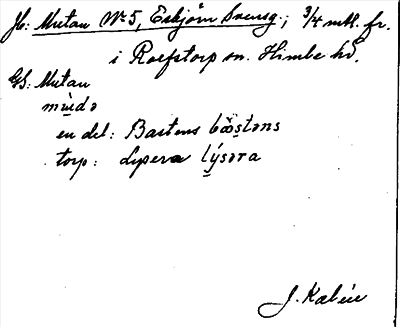 Jb: Mutan No 5, Eskjörn Svensg; 3/4 mtl. fr.
i Roefstorp sn. Himle hd.
GS: Mutan
mùdə
en del: Bastens bàstəns
torp: Lysera lýsəra
J. Kalén